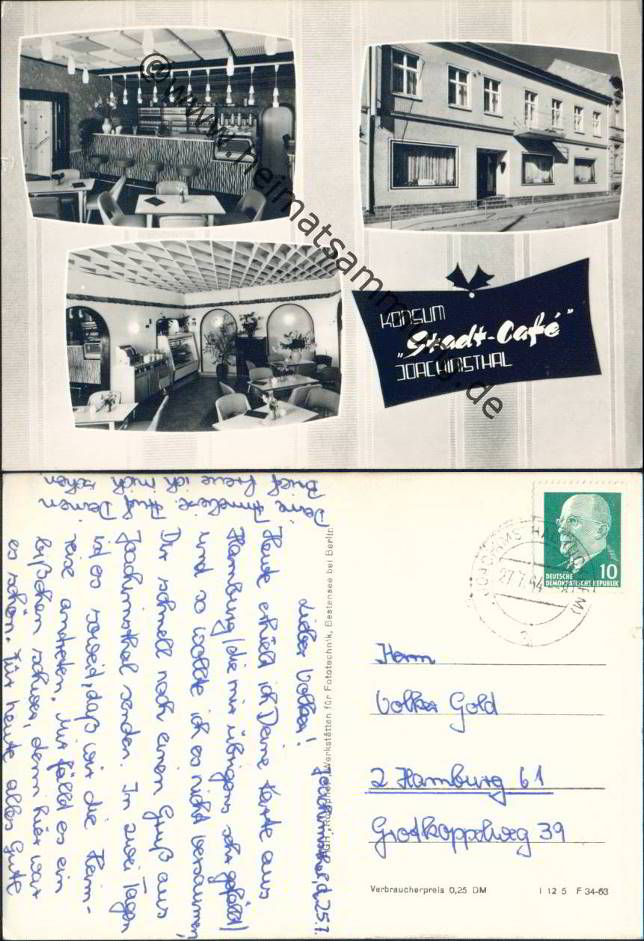 © www.heimatsammlung.de
KONSUM
„Stadt-Café"
JOACHIMSTHAL
Joachimsthal, d. 25.7.
Lieber Volker!
Heute erhielt ich Deine Karte aus
Hamburg (die mir übrigens sehr gefällt)
und so wollte ich es nicht versäumen,
Dir schnell noch einen Gruß aus
Joachimsthal senden. In zwei Tagen
ist es soweit, daß wir die Heim-
reise antreten. Mir fällt es ein
bißchen schwer, denn hier war
es schön. Für heute alles Gute
Deine Annelise. Auf Deinen
Brief freue ich mich schon
Werkstätten für Fototechnik, Bestensee bei Berlin
DEUTSCHE
DEMOKRATISCHE REPUBLIK
10
27.7.64
Herrn
Volker Gold
2 Hamburg 61
Grotkoppelweg 39
Verbraucherpreis 0,25 DM
I 12 5 F 34-63